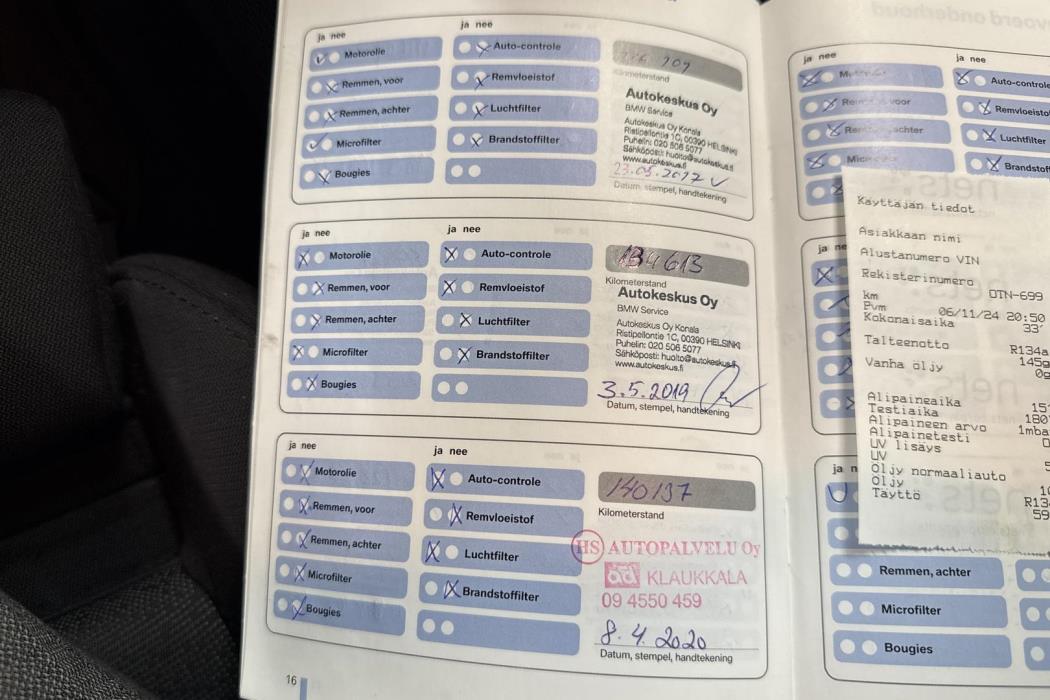 ja nee
Motorolie
Remmen, voor
Remmen, achter
Microfilter
Bougies
ja nee
Auto-controle
Remvloeistof
Luchtfilter
Brandstoffilter
Kilometerstand
Autokeskus Oy
BMW Service
Autokeskus Oy Konala
Ristipellontie 1C, 00390 HELSINKI
Puhelin: 020 506 5077
Sähköposti: huolto@autokeskus.fi
www.autokeskus.fi
23.05.2017
Datum, stempel, handtekening
ja nee
Motorolie
Remmen, voor
Remmen, achter
Microfilter
Bougies
ja nee
Auto-controle
Remvloeistof
Luchtfilter
Brandstoffilter
134613
Kilometerstand
Autokeskus Oy
BMW Service
Autokeskus Oy Konala
Ristipellontie 1C, 00390 HELSINKI
Puhelin: 020 506 5077
Sähköposti: huolto@autokeskus.fi
www.autokeskus.fi
3.5.2019
Datum, stempel, handtekening
ja nee
Motorolie
Remmen, voor
Remmen, achter
Microfilter
Bougies
ja nee
Auto-controle
Remvloeistof
Luchtfilter
Brandstoffilter
140137
Kilometerstand
HS AUTOPALVELU Oy
ad KLAUKKALA
09 4550 459
8.4.2020
Datum, stempel, handtekening
16
ja nee
Remmen, voor
Remmen, achter
ja nee
Auto-controle
Remvloeisto
Luchtfilter
Brandstof
ja ne
ja n
Remmen, achter
Microfilter
Bougies
Käyttäjän tiedot
Asiakkaan nimi
Alustanumero VIN
Rekisterinumero
OTN-699
km
Pvm 06/11/24 20:50
Kokonaisaika 33'
Talteenotto R134a
145g
Vanha öljy 0g
Alipaineaika 15'
Testiaika 180
Alipaineen arvo 1mba
Alipainetesti
UV lisäys
UV
Öljy normaaliauto
Öljy
Täyttö R13
59